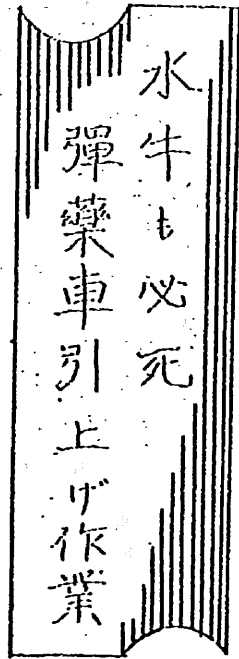 水牛も必死
彈藥車引上げ作業